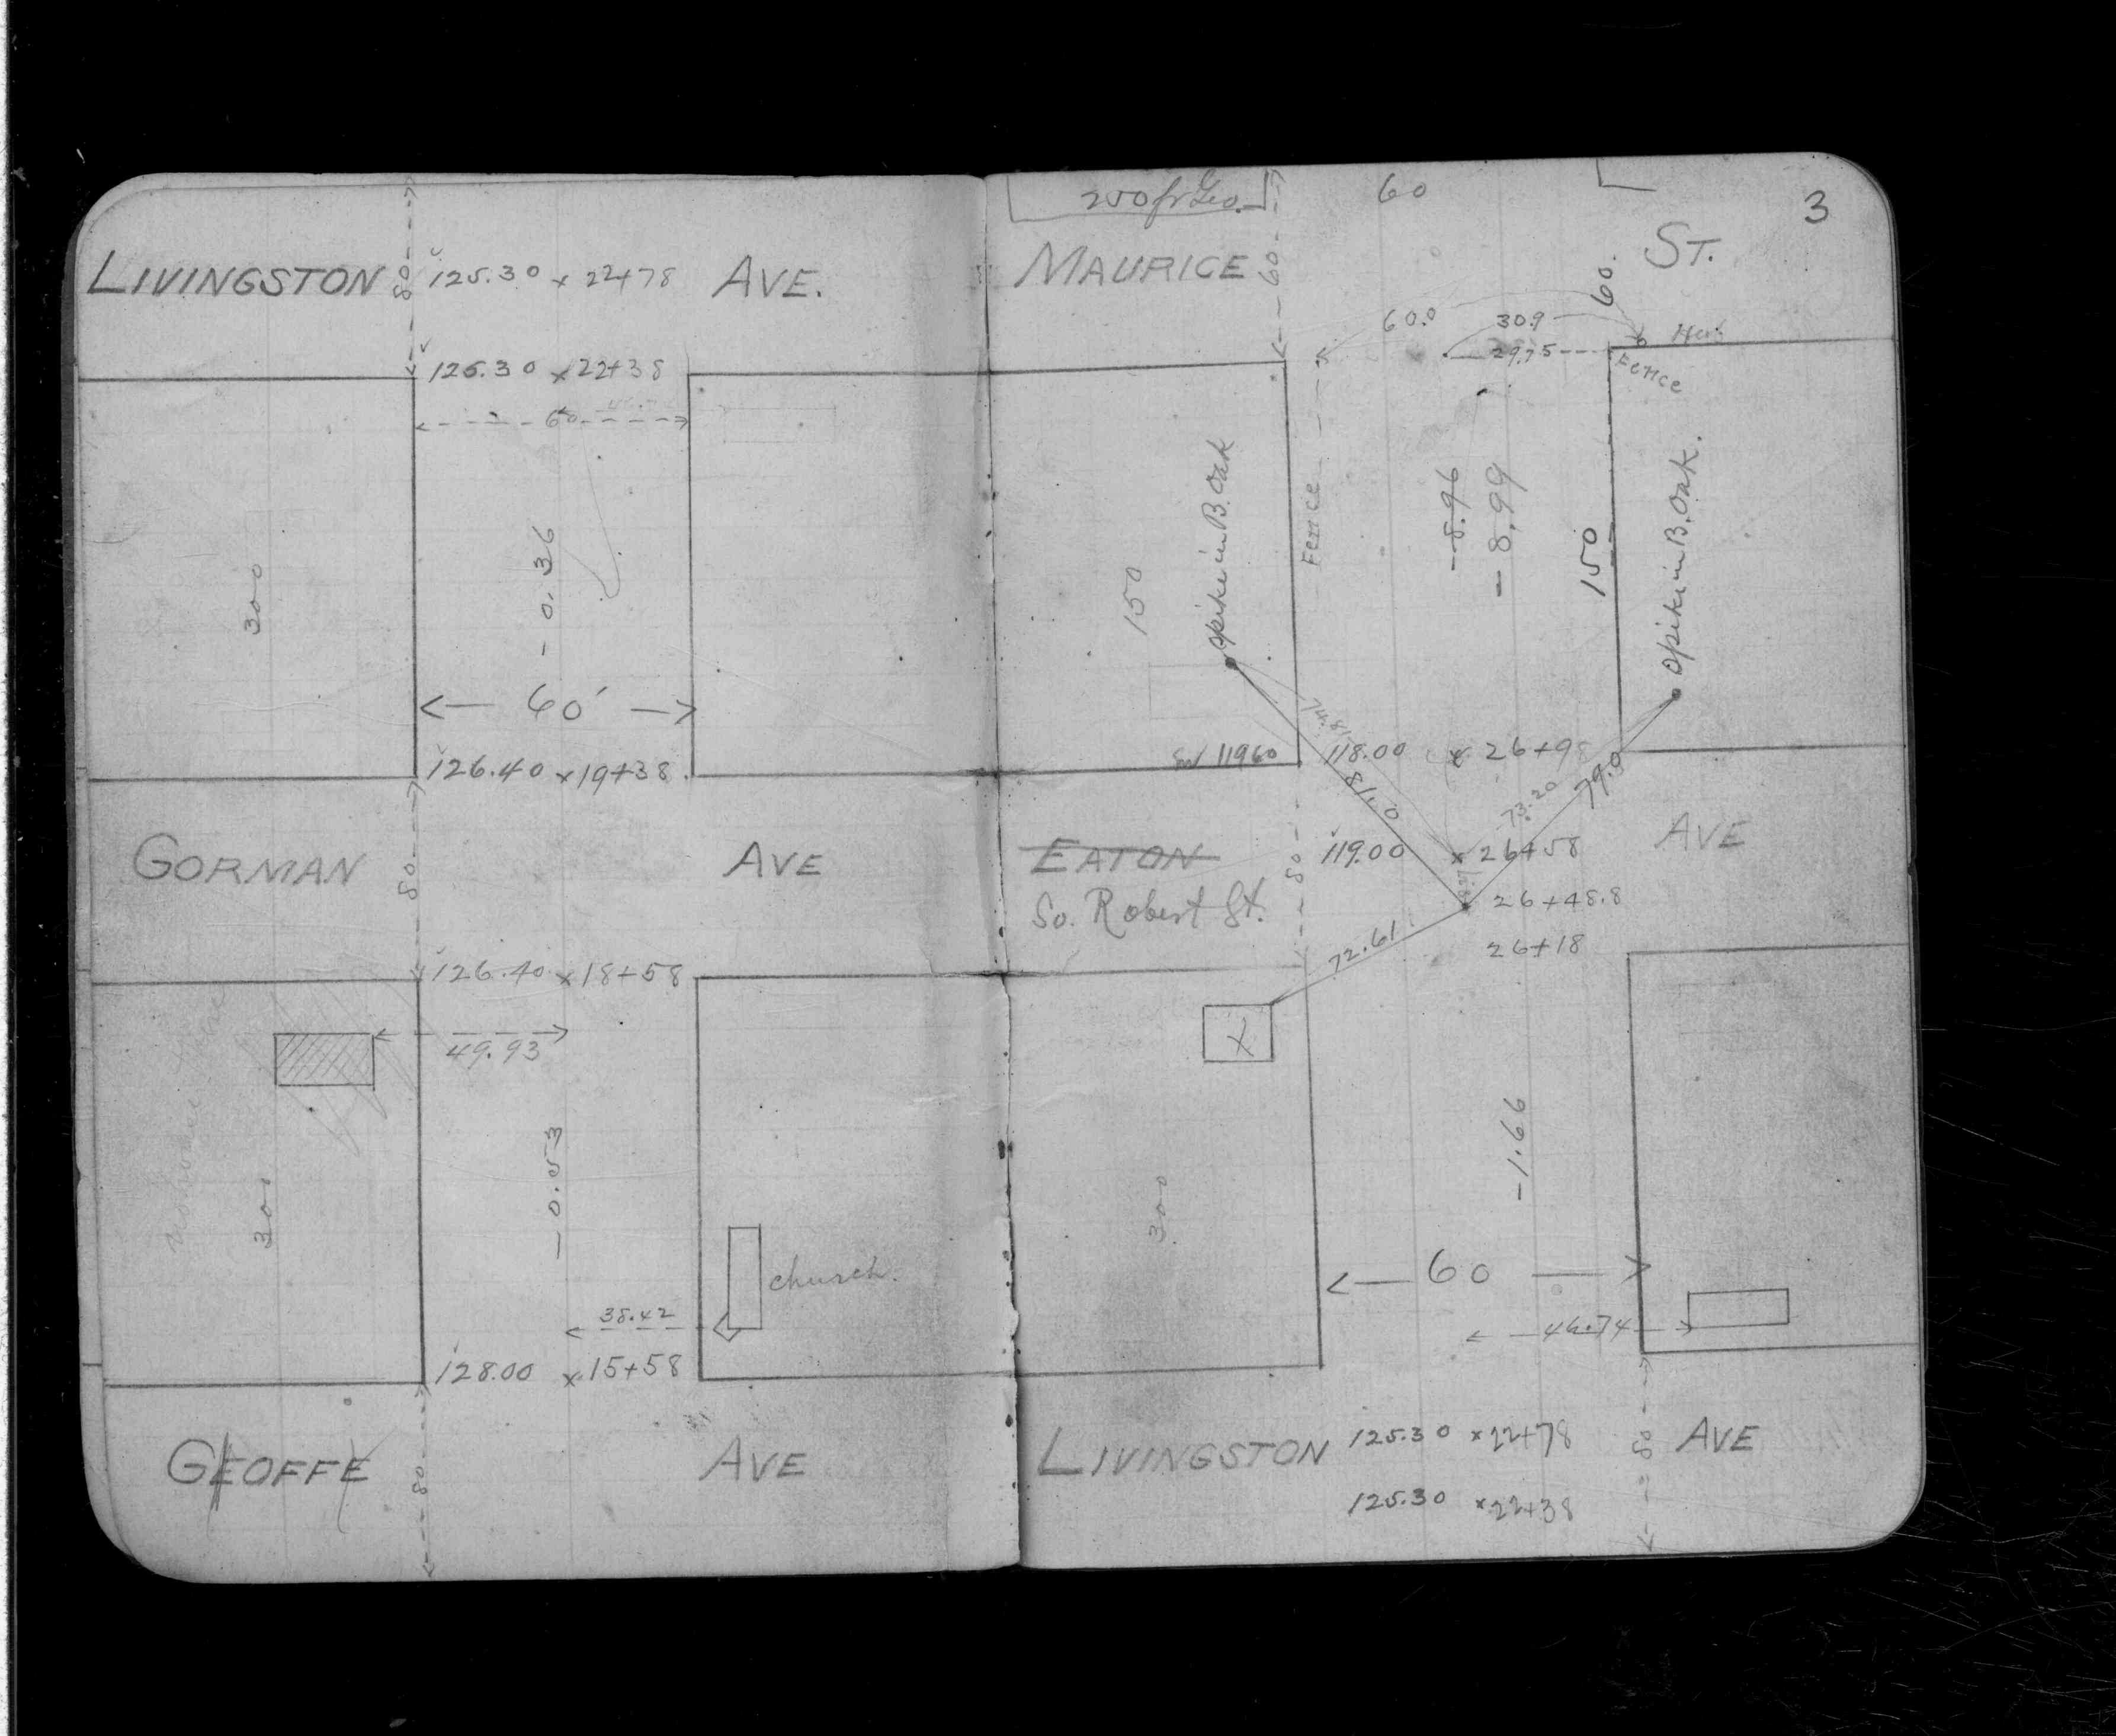 LIVINGSTON 80 125.30 x 22+78 AVE.
126.30 x 22+38
60
300
- 0.36
60'
126.40 x 19+38
GORMAN 80 AVE
126.40 x 18+58
49.93
300
- 0.53
church.
38.42
128.00 x 15+58
GEOFFE 80 AVE
250 fr Geo.
60
3
MAURICE 60 60. ST.
60.0 30.9
29.75
Fence
150
spike in B. Oak
Fence
- 8.96
- 8.99
150
spike in B. Oak.
SW 119.60 118.00 x 26+98
81.0
73.20
79.9
EATON 80 119.00 x 26+58 AVE
So. Robert St.
26+48.8
72.61
26+18
X
300
- 1.66
60
46.74
LIVINGSTON 125.30 x 22+78 80 AVE
125.30 x 22+38